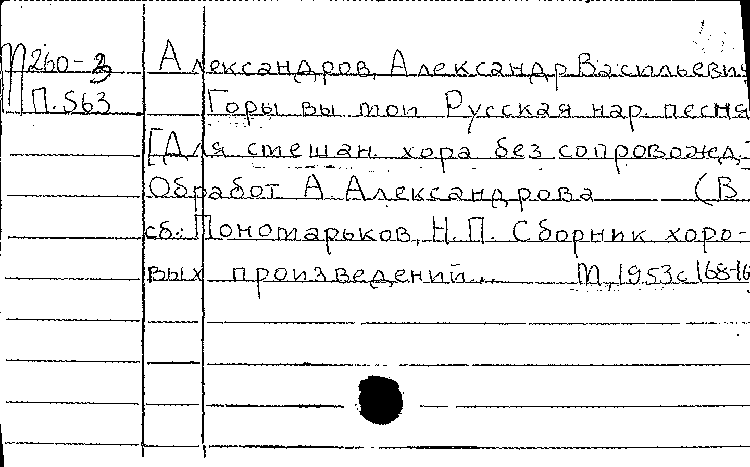 М260-3 Александров, Александр Васильевич
П.563 Горы вы мои Русская нар. песня
[Для смешан. хора без сопровожд.]
Обработ А. Александрова (В
сб.: Пономарьков, Н.П. Сборник хоро-
вых произведений... М., 1953 с 168-16